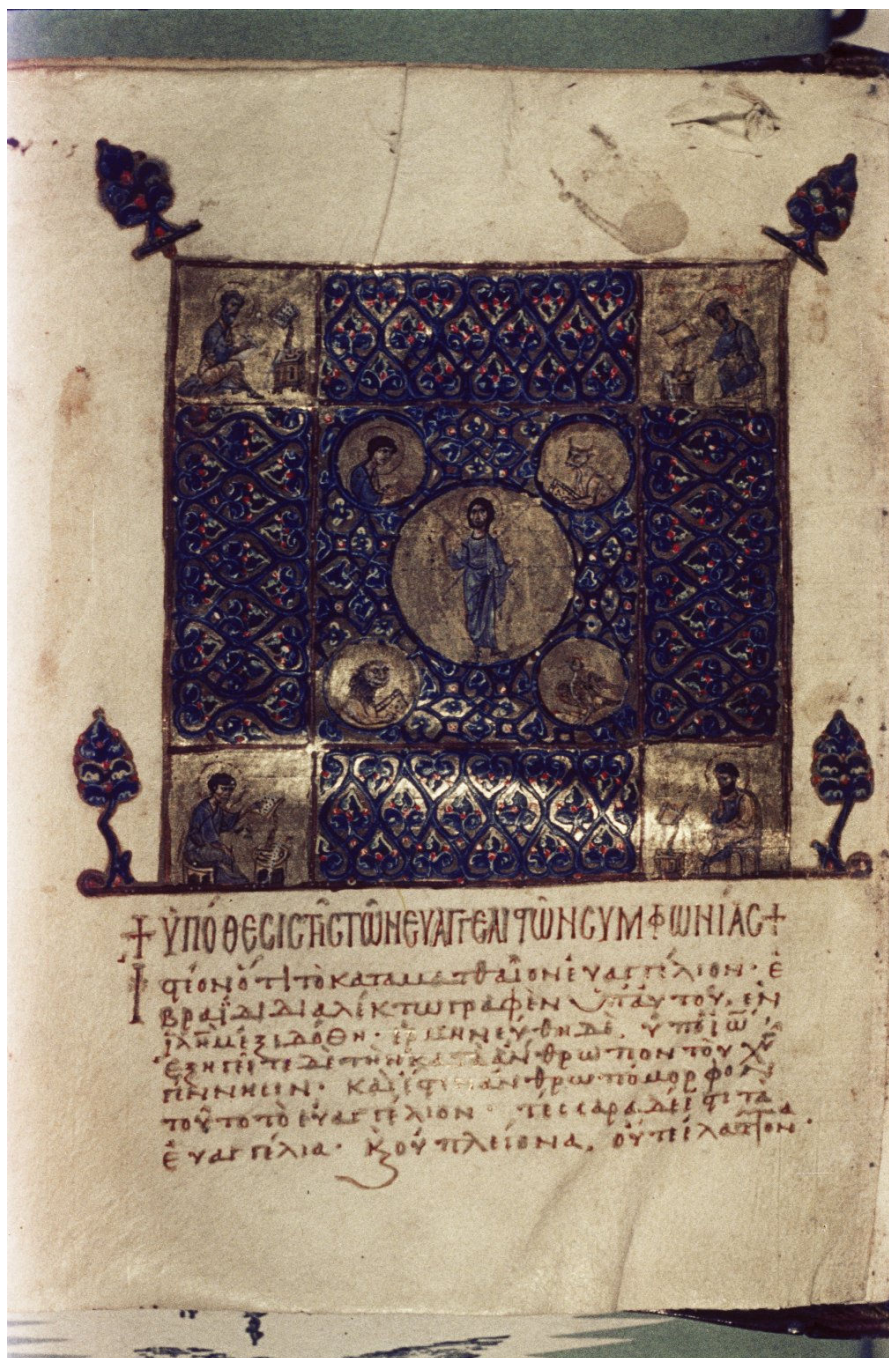 + ὙΠΌΘΕCΙC ΤΗ͂C ΤΩ͂Ν ΕΥΑΓΓΕΛΙΤΩ͂Ν CΥΜΦΩΝΊΑC +
Ἰϛτέον ὅτι τὸ κατὰ ματθαῖον ἐυαγγέλιον· ἑ
βραΐδι διαλέκτω γραφὲν ὑπ' αυτοῦ, ἐν
ϊλη̄μ ἐξεδόθη· ἑρμηνεύθη δὲ, ὑπὸ ϊω̄·
ἐξηγεῖτε δὲ τὴν κατὰ ἄνθρωπον τοῦ χ̄υ
γέννησιν· καὶ ἔϛιν ἀνθρωπόμορφον
τοῦτο τὸ ἐυαγγέλιον· τέσσαρα δέ ἐϛι τὰ
ἐυαγγέλια· ϗ οὐ πλείονα, οὔτε ἐλάττονα·